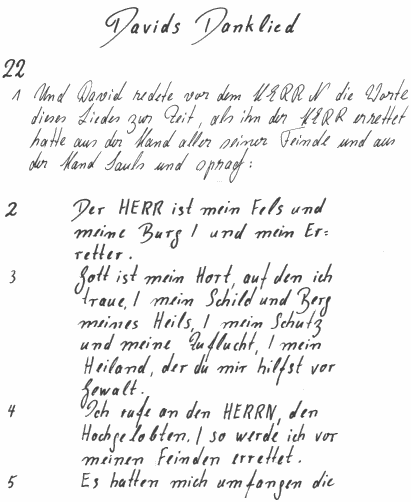 Davids Danklied
22
1 Und David redete vor dem HERRN die Worte
dieses Liedes zur Zeit, als ihn der HERR errettet
hatte aus der Hand aller seiner Feinde und aus
der Hand Sauls und sprach:
2 Der HERR ist mein Fels und
meine Burg / und mein Er=
retter.
3 Gott ist mein Hort, auf den ich
traue, / mein Schild und Berg
meines Heils, / mein Schutz
und meine Zuflucht, / mein
Heiland, der du mir hilfst vor
Gewalt.
4 Ich rufe an den HERRN, den
Hochgelobten, / so werde ich vor
meinen Feinden errettet.
5 Es hatten mich umfangen die